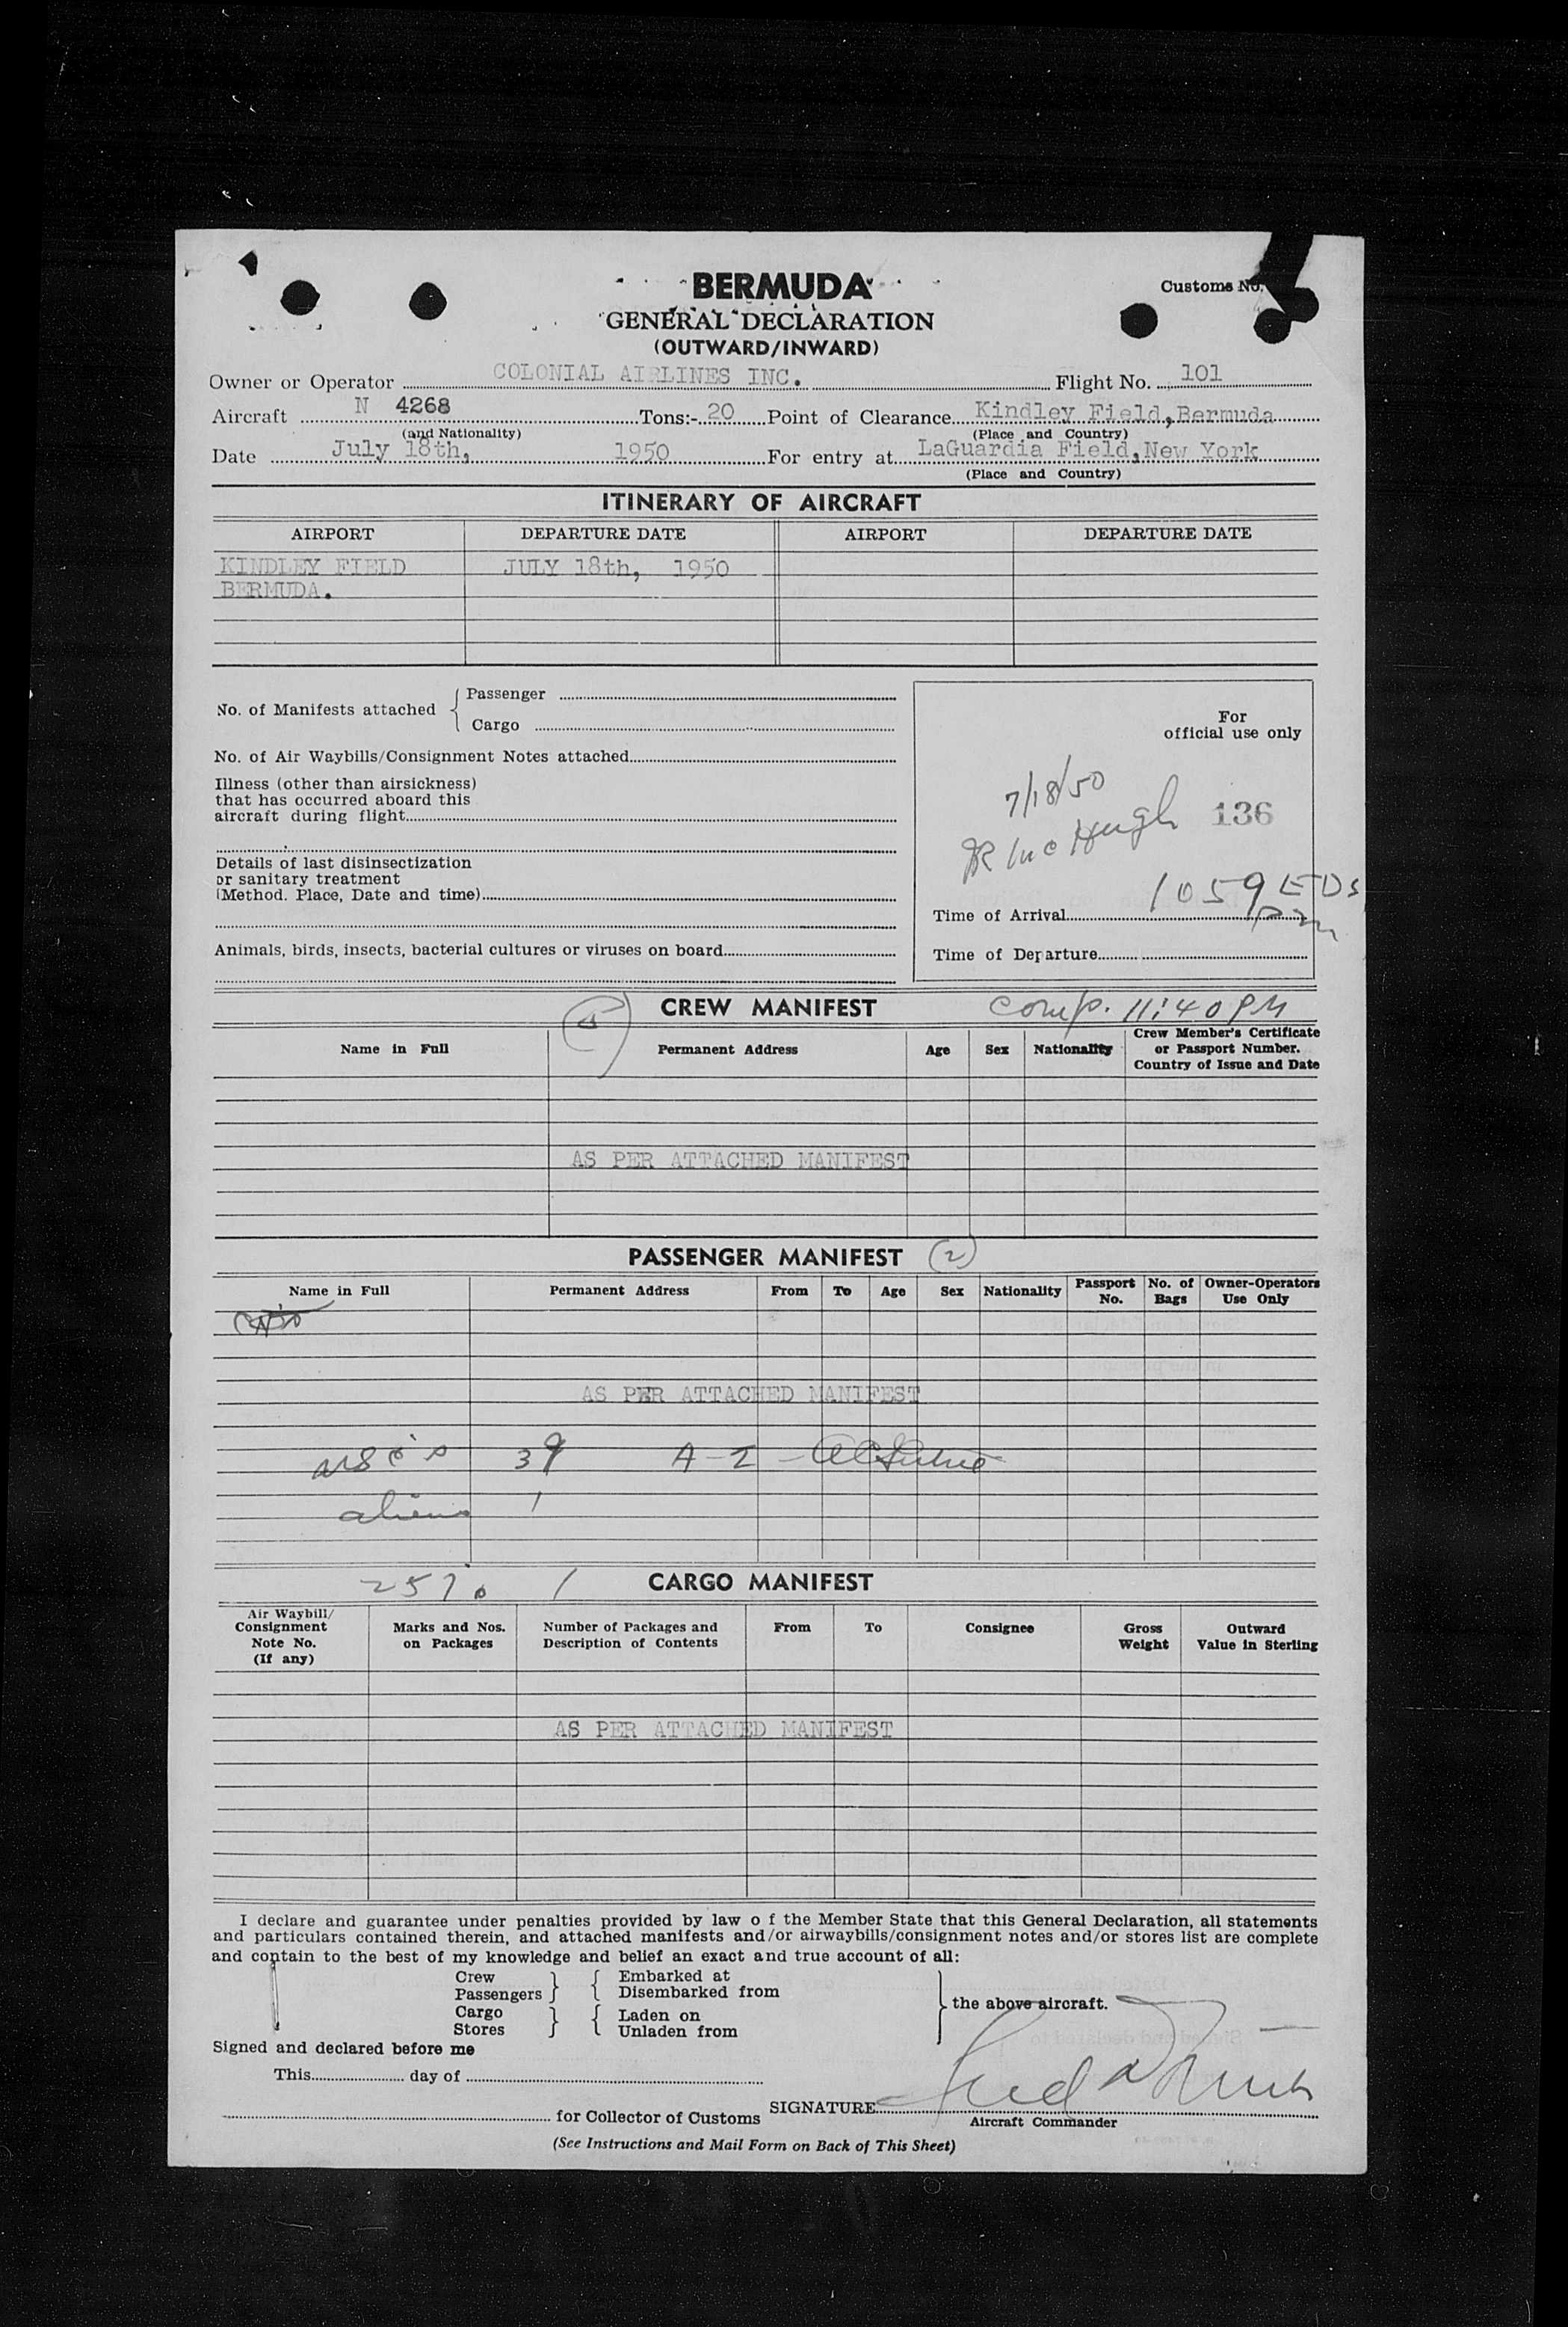 BERMUDA
Customs No.
GENERAL DECLARATION
(OUTWARD/INWARD)
Owner or Operator COLONIAL AIRLINES INC. Flight No. 101
Aircraft N 4268 Tons:- 20 Point of Clearance Kindley Field, Bermuda
(and Nationality) (Place and Country)
Date July 18th, 1950 For entry at LaGuardia Field, New York
(Place and Country)
ITINERARY OF AIRCRAFT
AIRPORT DEPARTURE DATE AIRPORT DEPARTURE DATE
KINDLEY FIELD JULY 18th, 1950
BERMUDA.
No. of Manifests attached { Passenger
Cargo
No. of Air Waybills/Consignment Notes attached
Illness (other than airsickness)
that has occurred aboard this
aircraft during flight
Details of last disinsectization
or sanitary treatment
(Method. Place, Date and time)
Animals, birds, insects, bacterial cultures or viruses on board
For
official use only
7/18/50
McHugh 136
1059 EDS
Time of Arrival PM
Time of Departure
CREW MANIFEST comp. 11:40 PM
Name in Full Permanent Address Age Sex Nationality Crew Member's Certificate
or Passport Number.
Country of Issue and Date
AS PER ATTACHED MANIFEST
PASSENGER MANIFEST (2)
Name in Full Permanent Address From To Age Sex Nationality Passport No. No. of Bags Owner-Operators Use Only
AS PER ATTACHED MANIFEST
39 A-2
aliens 1
257. 1 CARGO MANIFEST
Air Waybill/
Consignment
Note No.
(If any)
Marks and Nos.
on Packages
Number of Packages and
Description of Contents
From
To
Consignee
Gross
Weight
Outward
Value in Sterling
AS PER ATTACHED MANIFEST
I declare and guarantee under penalties provided by law o f the Member State that this General Declaration, all statements
and particulars contained therein, and attached manifests and/or airwaybills/consignment notes and/or stores list are complete
and contain to the best of my knowledge and belief an exact and true account of all:
Crew } { Embarked at
Passengers } { Disembarked from
Cargo } { Laden on
Stores } { Unladen from
} the above aircraft.
Signed and declared before me
This day of
for Collector of Customs
SIGNATURE
Aircraft Commander
(See Instructions and Mail Form on Back of This Sheet)